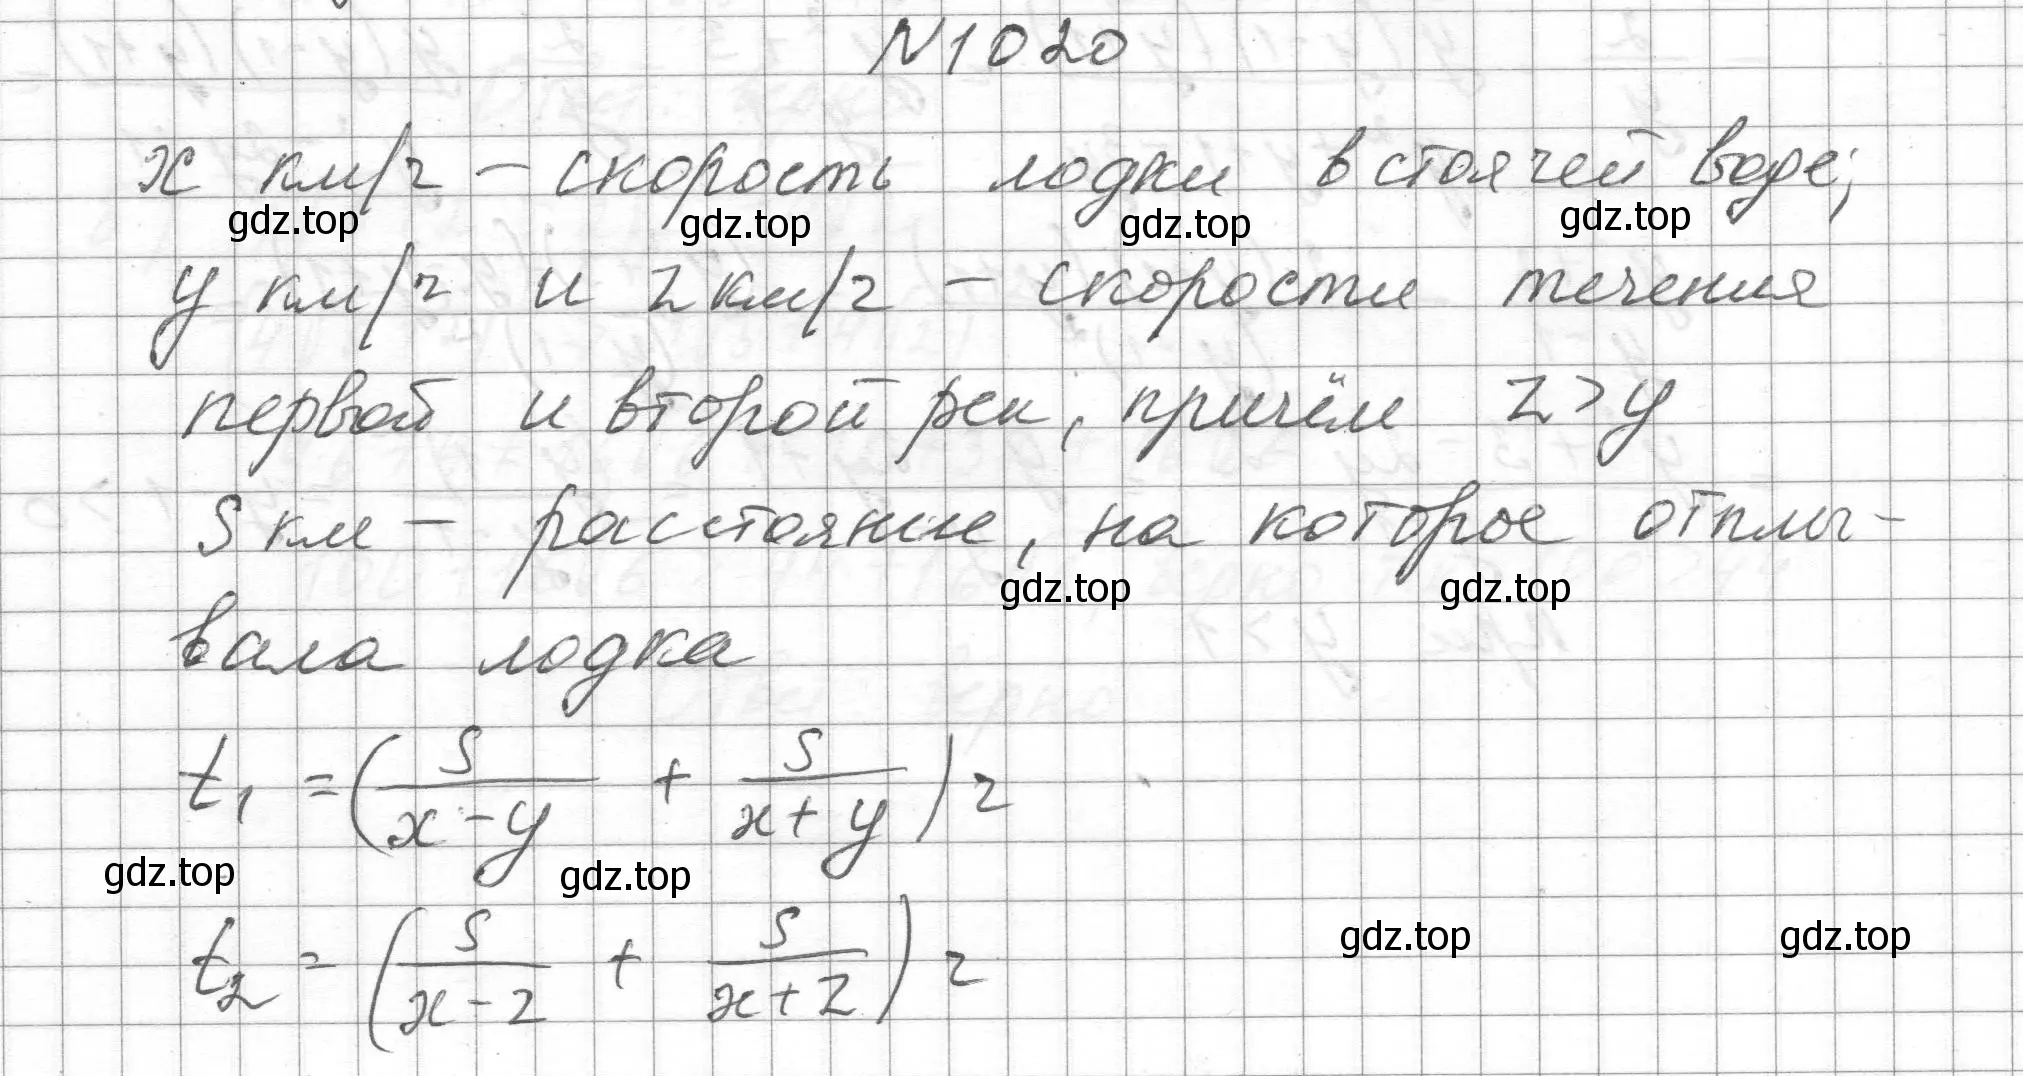 N1020
x км/ч – скорость лодки в стоячей воде;
gdz.top gdz.top gdz.top gdz.top
y км/ч и z км/ч – скорости течения
первой и второй рек, причём z > y
S км – расстояние, на которое отплы-
gdz.top gdz.top
вала лодка
t₁ = (S/(x - y) + S/(x + y)) ч
gdz.top gdz.top
t₂ = (S/(x - z) + S/(x + z)) ч
gdz.top gdz.top